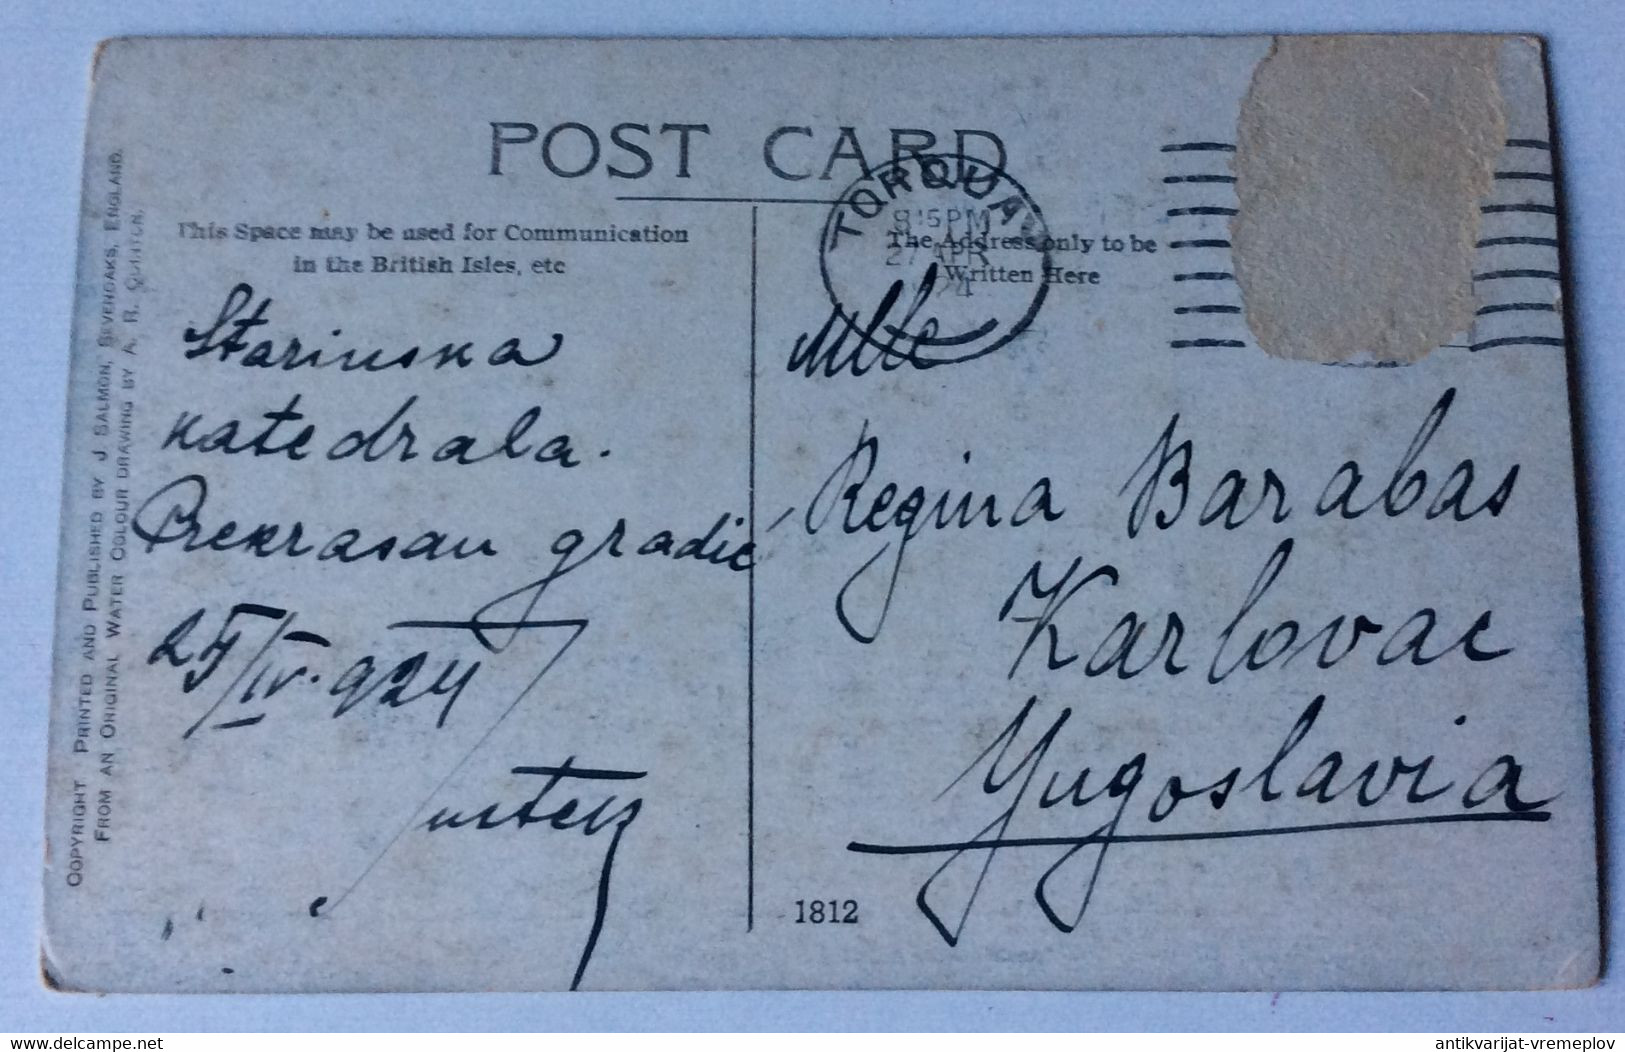 POST CARD
This Space may be used for Communication
in the British Isles, etc
The Address only to be
Written Here
TORQUAY
8 15 PM
27 APR
24
COPYRIGHT PRINTED AND PUBLISHED BY J. SALMON, SEVENOAKS, ENGLAND.
FROM AN ORIGINAL WATER COLOUR DRAWING BY A. R. QUINTON.
Starinska
katedrala.
Prekrasan gradić
25/IV. 924
Mlle
Regina Barabas
Karlovac
Yugoslavia
1812
www.delcampe.net
antikvarijat-vremeplov